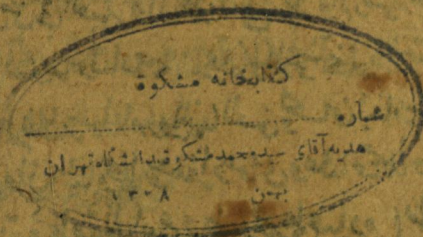 کتابخانه مشکوة
شماره
هدیه آقای سیدمحمد مشکوة بدانشگاه تهران
بهمن ۱۳۲۸